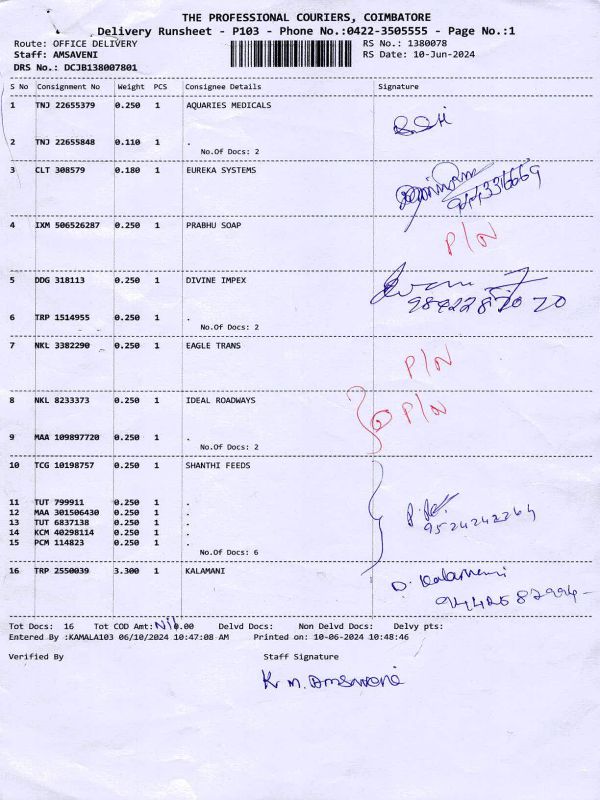 THE PROFESSIONAL COURIERS, COIMBATORE
Delivery Runsheet - P103 - Phone No.:0422-3505555 - Page No.:1
Route: OFFICE DELIVERY RS No.: 1380078
Staff: AMSAVENI RS Date: 10-Jun-2024
DRS No.: DCJB138007801
S No Consignment No Weight PCS Consignee Details Signature
1 TNJ 22655379 0.250 1 AQUARIES MEDICALS
2 TNJ 22655848 0.110 1 .
No.Of Docs: 2
3 CLT 308579 0.180 1 EUREKA SYSTEMS
4 IXM 506526287 0.250 1 PRABHU SOAP
P/N
5 DDG 318113 0.250 1 DIVINE IMPEX
6 TRP 1514955 0.250 1 .
No.Of Docs: 2
7 NKL 3382290 0.250 1 EAGLE TRANS
P/N
8 NKL 8233373 0.250 1 IDEAL ROADWAYS
P/N
9 MAA 109897720 0.250 1 .
No.Of Docs: 2
10 TCG 10198757 0.250 1 SHANTHI FEEDS
11 TUT 799911 0.250 1 .
12 MAA 301506430 0.250 1 .
13 TUT 6837138 0.250 1 .
14 KCM 40298114 0.250 1 .
15 PCM 114823 0.250 1 .
No.Of Docs: 6
16 TRP 2550039 3.300 1 KALAMANI
D. Kalamani
Tot Docs: 16 Tot COD Amt: Nil 0.00 Delvd Docs: Non Delvd Docs: Delvy pts:
Entered By :KAMALA103 06/10/2024 10:47:08 AM Printed on: 10-06-2024 10:48:46
Verified By Staff Signature
K. M. Amsaveni